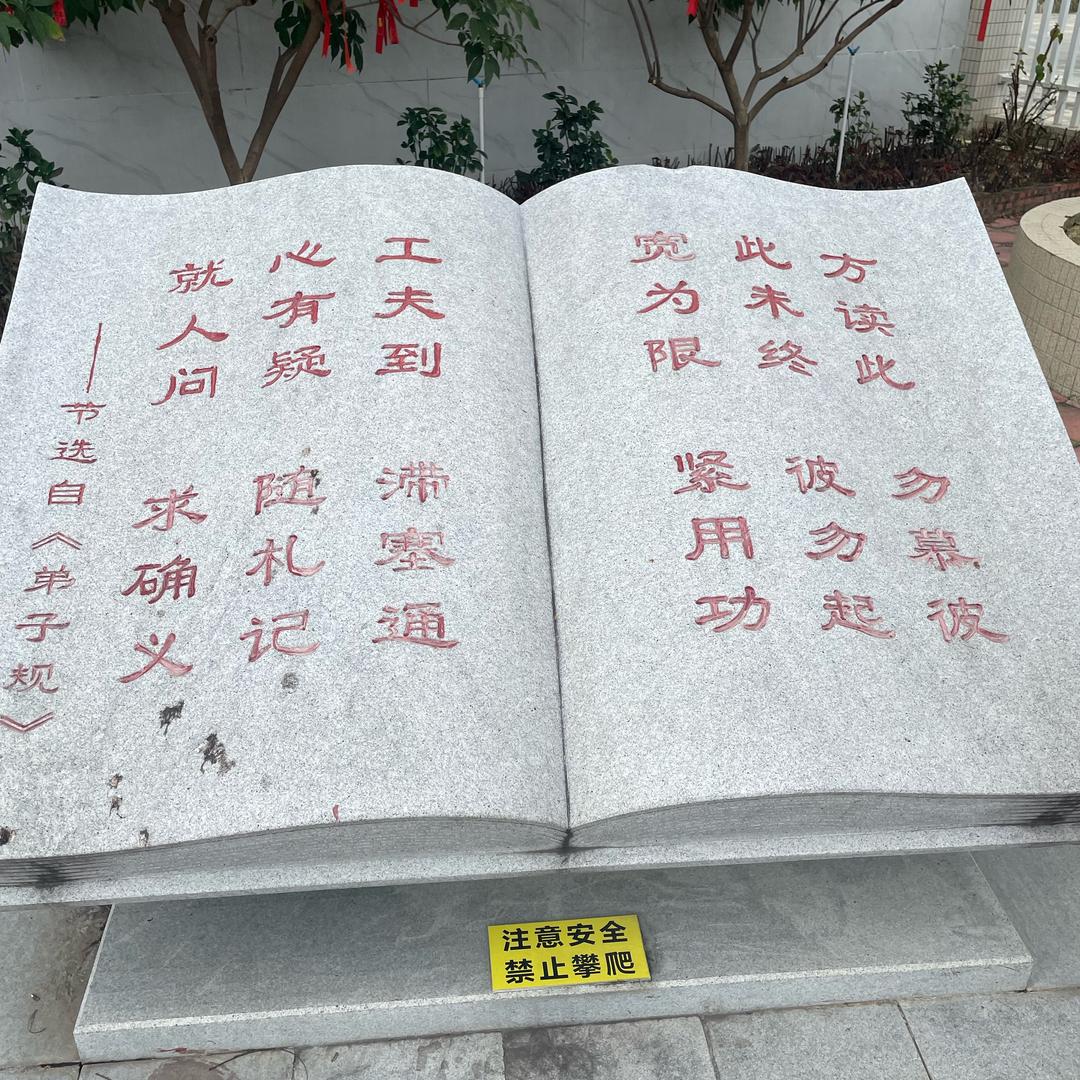 方读此 勿慕彼
此未终 彼勿起
宽为限 紧用功
工夫到 滞塞通
心有疑 随札记
就人问 求确义
——节选自《弟子规》
注意安全
禁止攀爬